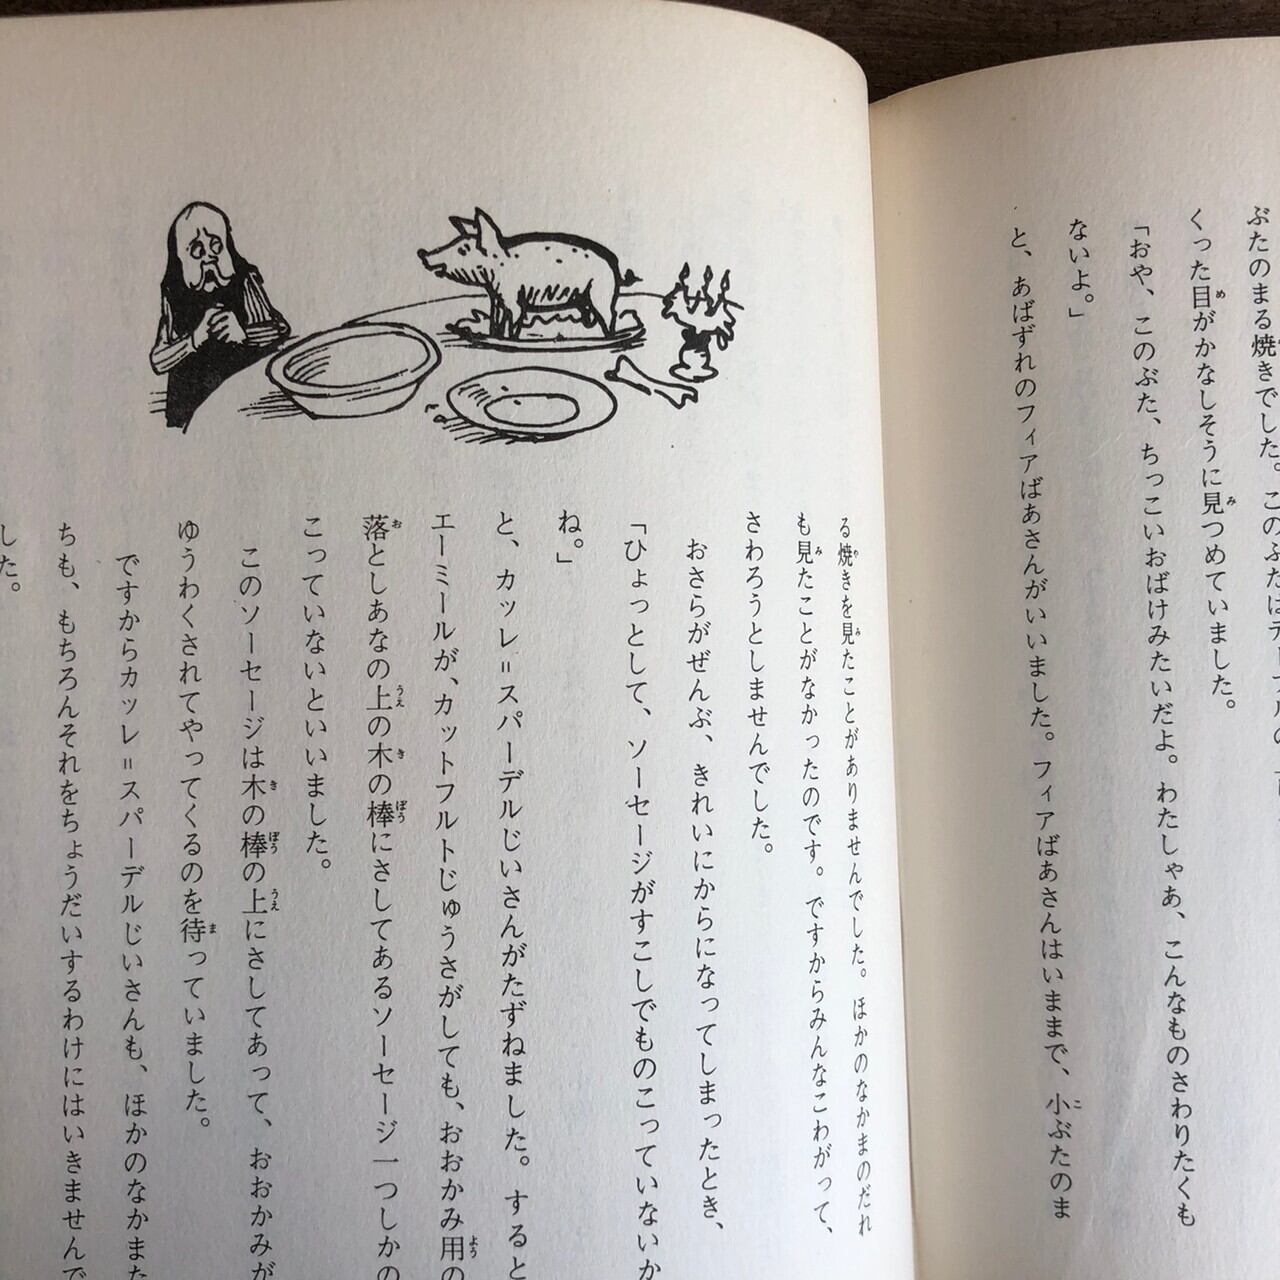 ぶたのまる焼きでした。このぶたはテーブルの
くった目がかなしそうに見つめていました。
「おや、このぶた、ちっこいおばけみたいだよ。わたしゃあ、こんなものさわりたくも
ないよ。」
と、あばずれのフィアばあさんがいいました。フィアばあさんはいままで、小ぶたのま
る焼きを見たことがありませんでした。ほかのなかまのだれ
も見たことがなかったのです。ですからみんなこわがって、
さわろうとしませんでした。
おさらがぜんぶ、きれいにからになってしまったとき、
「ひょっとして、ソーセージがすこしでものこっていないか
ね。」
と、カッレ=スパーデルじいさんがたずねました。すると
エーミールが、カットフルトじゅうさがしても、おおかみ用の
落としあなの上の木の棒にさしてあるソーセージ一つしかの
こっていないといいました。
このソーセージは木の棒の上にさしてあって、おおかみが
ゆうわくされてやってくるのを待っていました。
ですからカッレ=スパーデルじいさんも、ほかのなかまた
ちも、もちろんそれをちょうだいするわけにはいきませんで
した。